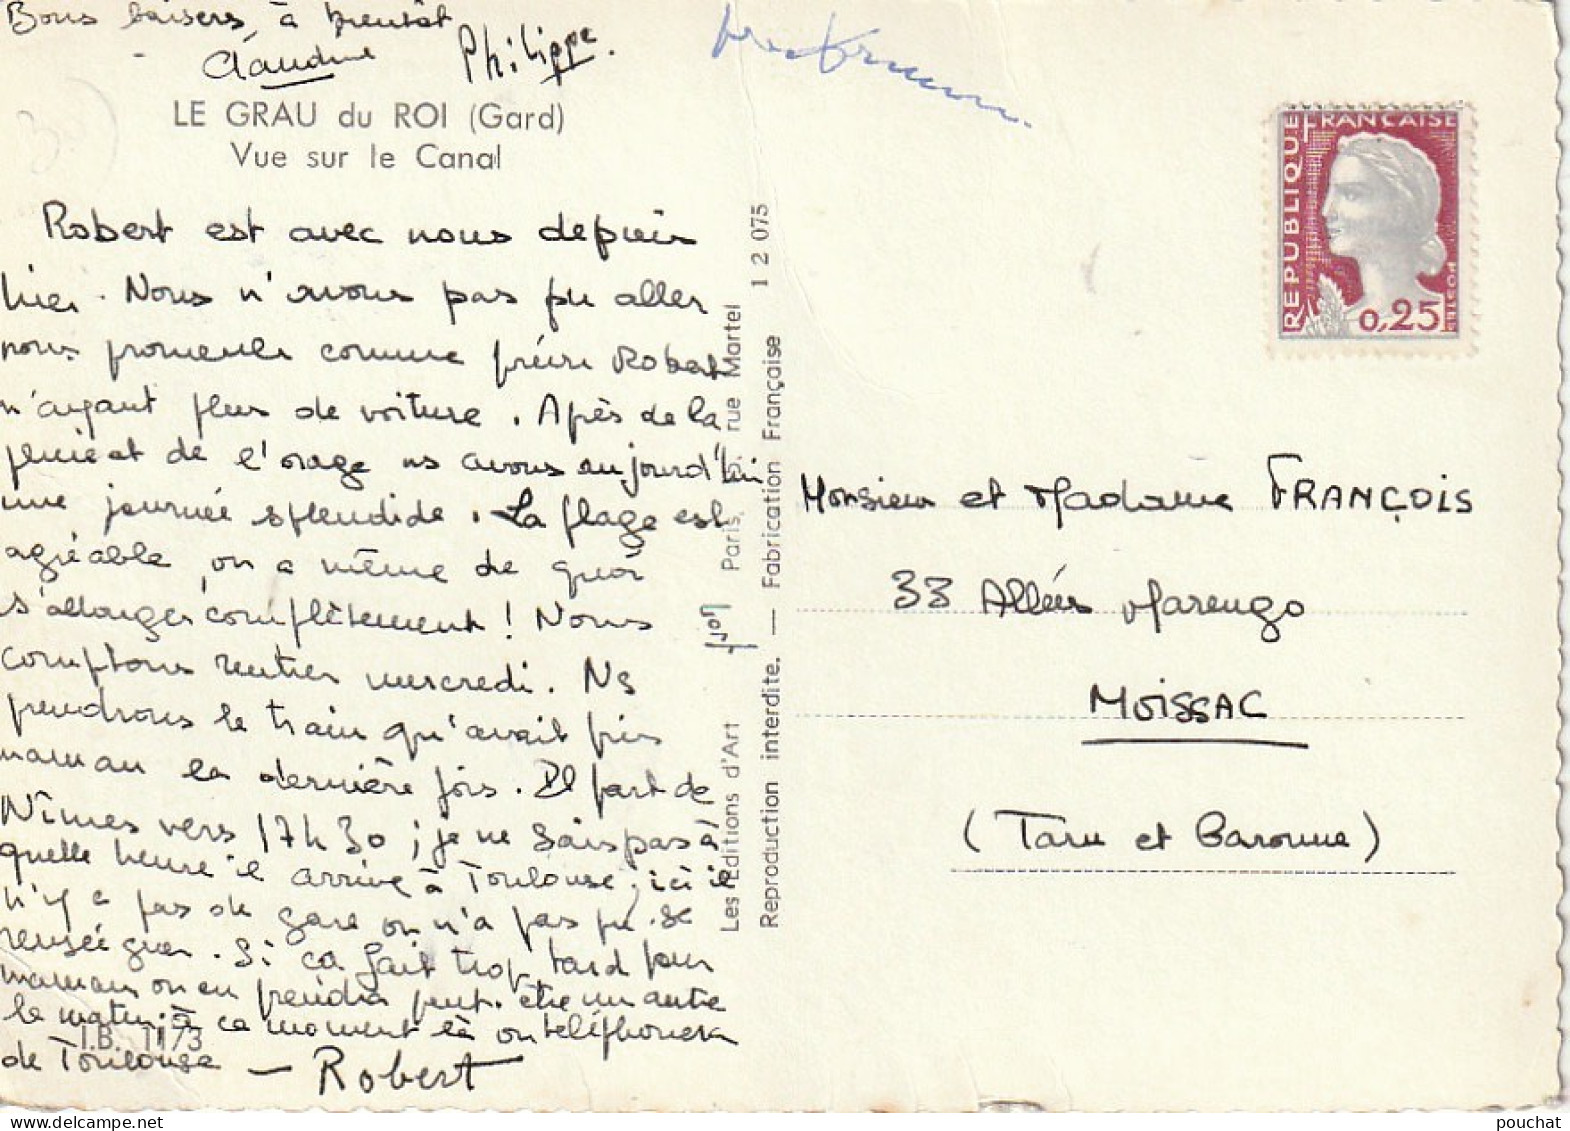 Bons baisers, à bientôt
Claudine Philippe.
LE GRAU du ROI (Gard)
Vue sur le Canal
Robert est avec nous depuis
hier. Nous n'avons pas pu aller
nous promener comme prévu Robert
n'ayant plus de voiture. Après de la
pluie et de l'orage ns avons aujourd'hui
une journée splendide. La plage est
agréable, on a même de quoi
s'allonger complètement! Nous
comptons rentrer mercredi. Ns
prendrons le train qu'avait pris
maman la dernière fois. Il part de
Nîmes vers 17h30; je ne sais pas à
quelle heure il arrive à Toulouse, ici il
n'y a pas de gare on n'a pas pu se
renseigner. Si ça fait trop tard pour
maman on en prendra peut-être un autre
le matin. à ce moment là on téléphonera
de Toulouse — Robert
I.B. 1173
Les Editions d'Art Yvon Paris, 15, rue Martel 12 075
Reproduction interdite. — Fabrication Française
REPUBLIQUE FRANÇAISE
POSTES
0,25F
Monsieur et Madame FRANÇOIS
33 Allées Marengo
MOISSAC
(Tarn et Garonne)
pouchat